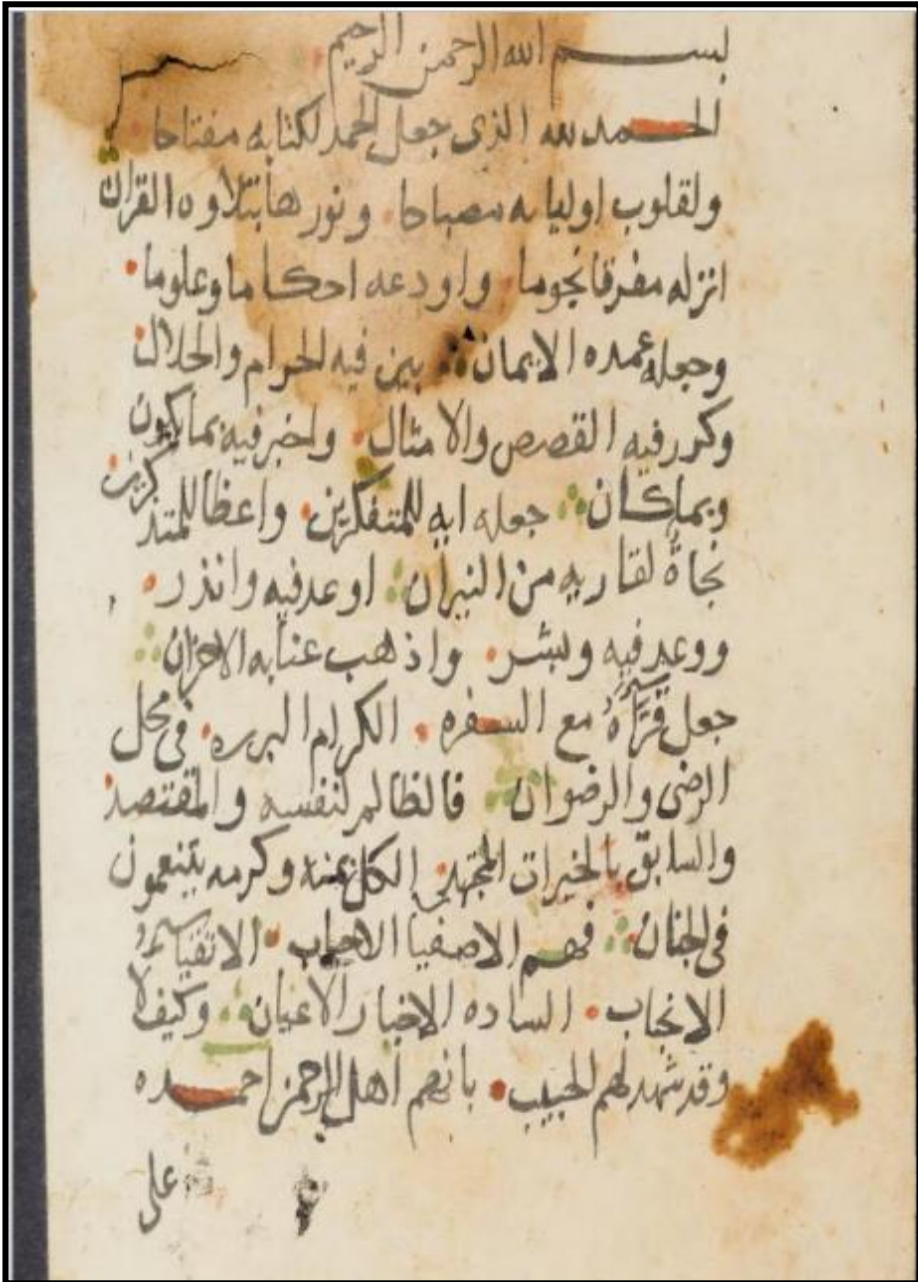 بسم الله الرحمن الرحيم
الحمد لله الذى جعل الحمد لكتابه مفتاحا
ولقلوب اوليايه مصباحا ونورهابتلاوه القران
انزله مفرقانجوما واودعه احكاما وعلوما
وجعله عمده الايمان بين فيه الحرام والحلال
وكرر فيه القصص والامثال واخبر فيه بمايكون
وبماكان جعله ايه للمتفكرين واعظا للمتذكرين
نجاةً لقاريه من النيران اوعد فيه وانذر
ووعد فيه وبشر واذهب عنابه الاحزان
جعل قرآءهُ مع السفره الكرام البرره فى محل
الرضى والرضوان فالظالم لنفسه والمقتصد
والسابق بالخيرات المجتهد الكل بمنه وكرمه يتنعمون
فى الجنان فهم الاصفيا الاحباب الاتقياءُ
الانجاب الساده الاخيار الاعيان وكيف لا
وقد شهد لهم الحبيب بانهم اهل الرحمن احمده
على